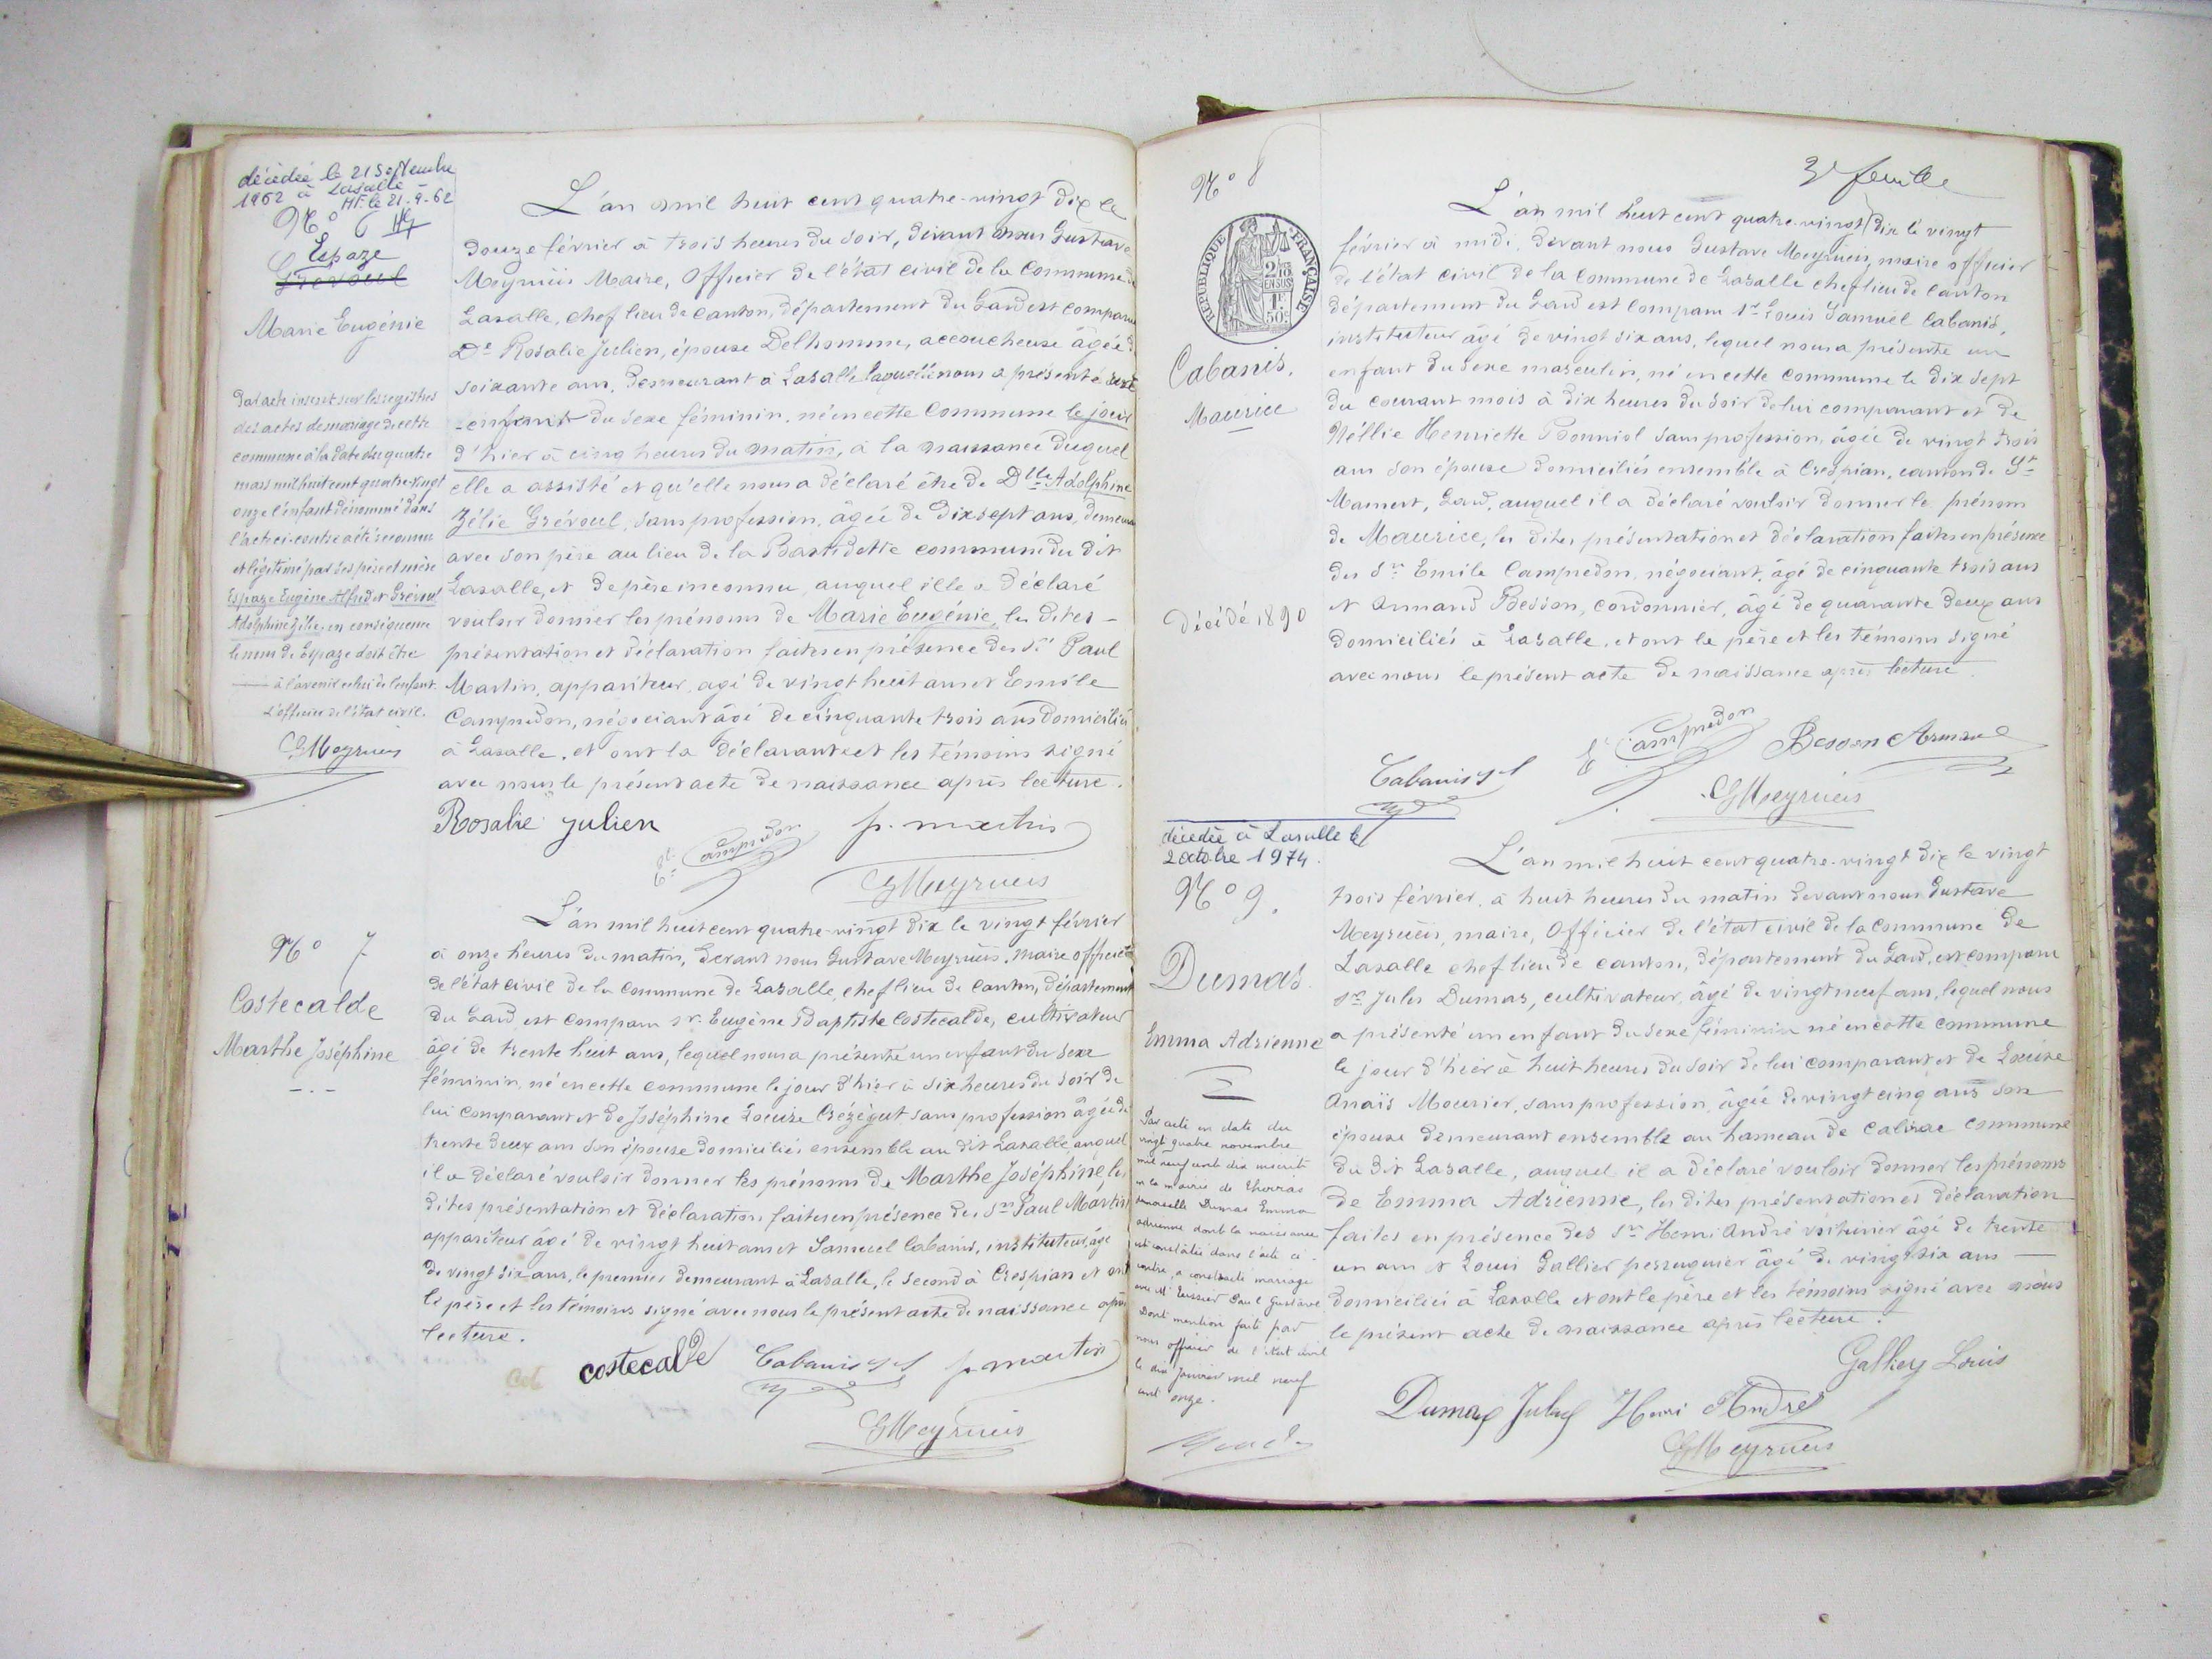 décédée le 21 Septembre
1962 à Lasalle
HF. le 21-9-62
N° 6
Espaze
Grévoul
Marie Eugénie
Par acte inscrit sur les registres
des actes de mariage de cette
commune à la date du quatre
mars mil huit cent quatre-vingt
onze l'enfant dénommé dans
l'acte ci-contre a été reconnu
et légitimé par ses père et mère
Espaze Eugène Alfred et Grévoul
Adolphine Zélie, en conséquence
le nom de Espaze doit être
à l'avenir celui de l'enfant.
L'officier de l'état civil.
GMeyrueis
L'an mil huit cent quatre-vingt dix le
douze février à trois heures du soir, devant nous Gustave
Meyrueis Maire, Officier de l'état civil de la Commune de
Lasalle, chef lieu de canton, département du Gard est comparue
De Rosalie Julien, épouse Delhomme, accoucheuse âgée de
soixante ans, demeurant à Lasalle laquelle nous a présenté un
enfant du sexe féminin, né en cette Commune le jour
d'hier à cinq heures du matin, à la naissance duquel
elle a assisté et qu'elle nous a déclaré être de Dlle Adolphine
Zélie Grévoul, sans profession, âgée de dix sept ans, demeurant
avec son père au lieu de la Bastidette commune du dit
Lasalle, et de père inconnu, auquel elle a déclaré
vouloir donner les prénoms de Marie Eugénie, les dites -
présentation et déclaration faites en présence des Srs Paul
Martin, appariteur, agé de vingt huit ans et Emile
Campredon, négociant âgé de cinquante trois ans domiciliés
à Lasalle, et ont la déclarante et les témoins signé
avec nous le présent acte de naissance après lecture.
Rosalie Julien
Campredon
p. martin
GMeyrueis
N° 7
Costecalde
Marthe Joséphine
L'an mil huit cent quatre-vingt dix le vingt février
à onze heures du matin, devant nous Gustave Meyrueis, maire officier
de l'état civil de la commune de Lasalle, chef lieu de canton, département
du Gard, est comparu Sr. Eugène Baptiste Costecalde, cultivateur
âgé de trente huit ans, lequel nous a présenté un enfant du sexe
féminin, né en cette commune le jour d'hier à six heures du soir de
lui comparant et de Joséphine Louise Crézégut sans profession âgée de
trente deux ans son épouse domiciliés ensemble au dit Lasalle, auquel
il a déclaré vouloir donner les prénoms de Marthe Joséphine, les
dites présentation et déclaration faites en présence des Srs Paul Martin
appariteur âgé de vingt huit ans et Samuel Cabanis, instituteur, âgé
de vingt six ans, le premier demeurant à Lasalle, le second à Crespian et ont
le père et les témoins signé avec nous le présent acte de naissance après
lecture.
costecalde
Cabanis
p. martin
GMeyrueis
3e feuille
N° 8
RÉPUBLIQUE FRANÇAISE
2/10 EN SUS
1F 50c
Cabanis.
Maurice
Décédé 1890
L'an mil huit cent quatre-vingt dix le vingt
février à midi, devant nous Gustave Meyrueis, maire officier
de l'état civil de la commune de Lasalle chef lieu de canton
département du Gard est comparu Sr Louis Samuel Cabanis,
instituteur âgé de vingt six ans, lequel nous a présenté un
enfant du sexe masculin, né en cette commune le dix sept
du courant mois à dix heures du soir de lui comparant et de
Nellie Henriette Bonniol sans profession, âgée de vingt trois
ans son épouse domiciliés ensemble à Crespian, canton de St
Mamert, Gard, auquel il a déclaré vouloir donner le prénom
de Maurice, les dites présentation et déclaration faites en présence
des Srs Emile Campredon, négociant, âgé de cinquante trois ans
et Armand Besson, cordonnier, âgé de quarante deux ans
domiciliés à Lasalle, et ont le père et les témoins signé
avec nous le présent acte de naissance après lecture.
Cabanis
E Campredon
Besson Armand
GMeyrueis
décédée à Lasalle le
2 octobre 1974.
N° 9.
Dumas.
Emma Adrienne
Par acte en date du
vingt quatre novembre
mil neuf cent dix inscrit
à la mairie de
Demoiselle Dumas Emma
Adrienne dont la naissance
est constatée dans l'acte ci-
contre, a contracté mariage
avec Mr Paul Gustave
Dont mention faite par
nous officier de l'état civil
le dix janvier mil neuf
cent onze.
L'an mil huit cent quatre-vingt dix le vingt
trois février, à huit heures du matin devant nous Gustave
Meyrueis, maire, Officier de l'état civil de la Commune de
Lasalle chef lieu de canton, département du Gard, est comparu
Sr Jules Dumas, cultivateur, âgé de vingt neuf ans, lequel nous
a présenté un enfant du sexe féminin né en cette commune
le jour d'hier à huit heures du soir de lui comparant et de Louise
Anaïs Mourier, sans profession, âgée de vingt cinq ans son
épouse demeurant ensemble au hameau de Calviac commune
du dit Lasalle, auquel il a déclaré vouloir donner les prénoms
de Emma Adrienne, les dites présentation et déclaration
faites en présence des Srs Henri André voiturier âgé de trente
un ans et Louis Gallier perruquier âgé de vingt six ans
domiciliés à Lasalle et ont le père et les témoins signé avec nous
le présent acte de naissance après lecture.
Louis
Dumas Jules
Henri André
GMeyrueis